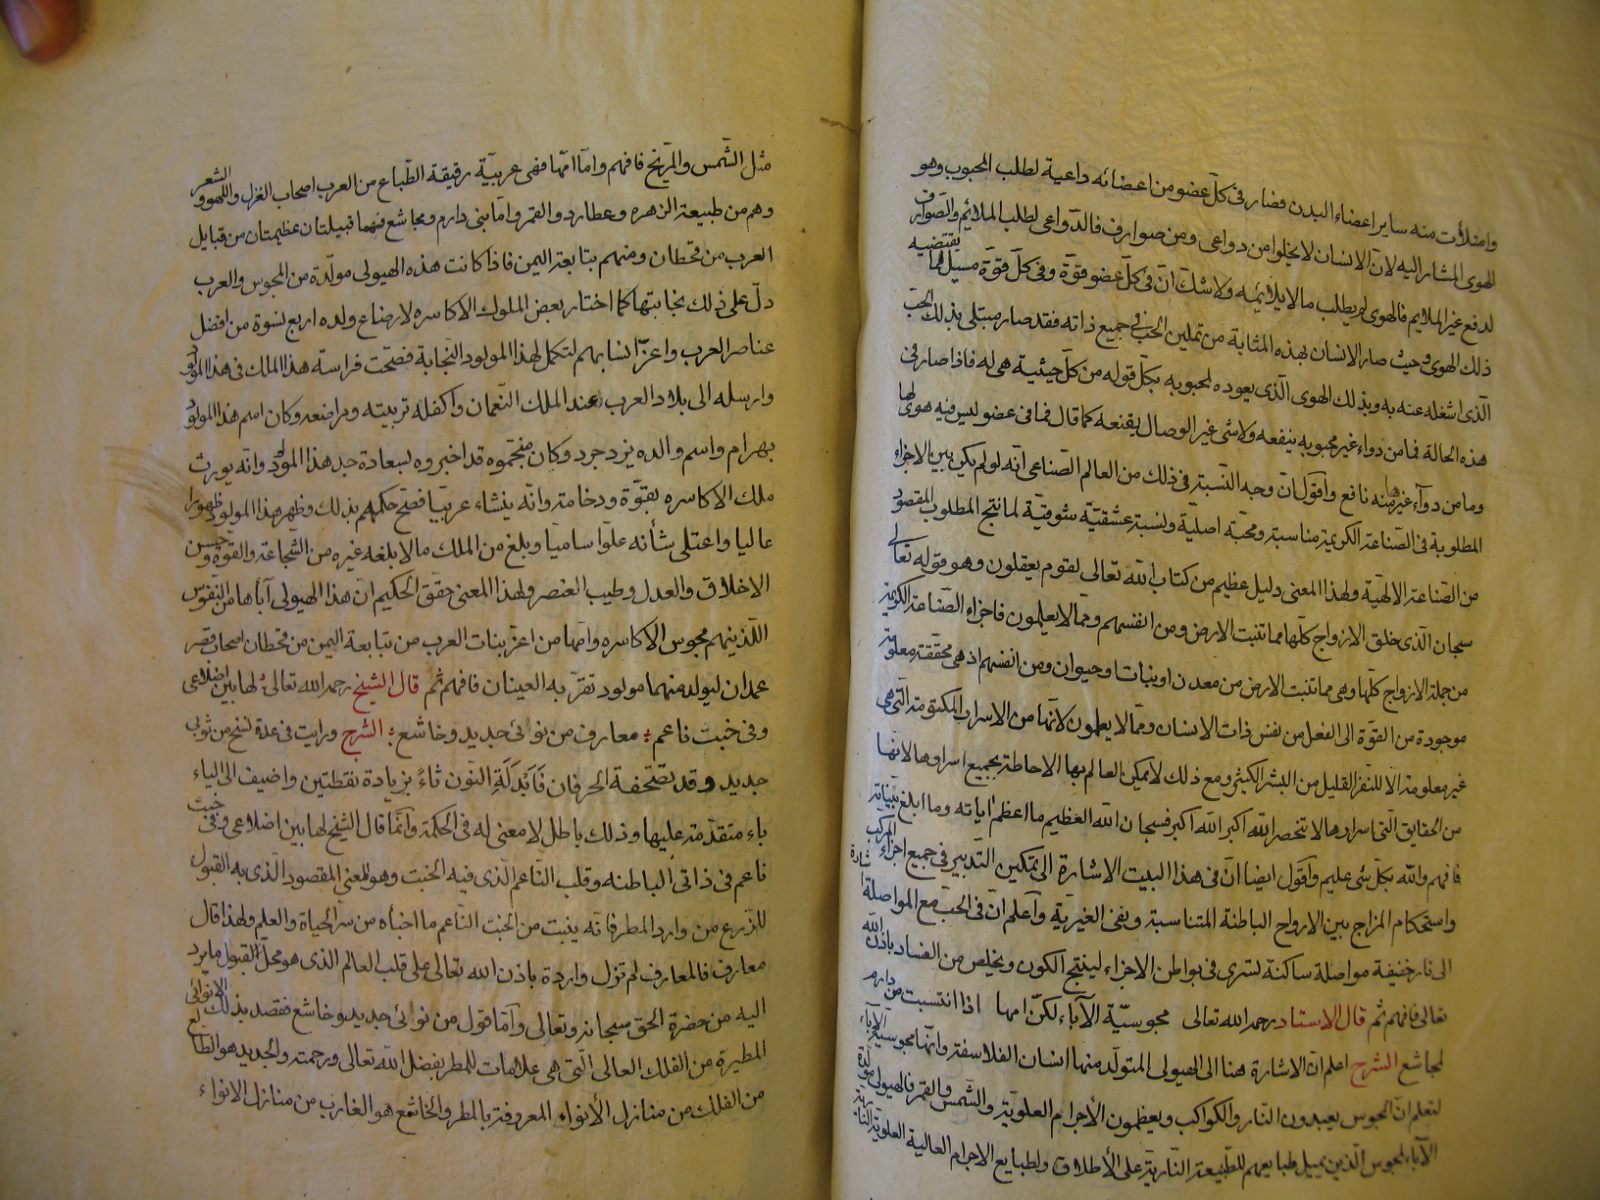 وامتلأت منه ساير اعضاء البدن فصار فى كلّ عضو من اعضائه داعية لطلب المحبوب وهو
الهوى المشار اليه لانّ الانسان لا يخلوا من دواعى ومن صوارف فالدّواعى لطلب الملائم والصّوارف
لدفع غير الملايم فالهوى لم يطلب ما لا يلائمه ولا شك انّ فى كلّ عضو قوّة وفى كلّ قوّة مسيل لما يقتضيه
ذلك الهوى وحيث صار الانسان بهذه المثابة من تمكين الحبّ فى جميع ذاته فقد صار مبتلى بذلك الحبّ
الّذى اشغله عنه به وبذلك الهوى الّذى يعوده لمحبوبه بكلّ قوله من كلّ حيثية هى له فاذا صار فى
هذه الحالة فما من دواء غير محبوبه ينفعه ولا شئ غير الوصال يقنعه كما قال فما فى عضو ليس فيه هوى لها
وما من دوآء غيرها منه نافع وأقول ان وجه النّسبة فى ذلك من العالم الصّناعى انّه لو لم يكن بين الاجزاء
المطلوبة فى الصّناعة الكريمة مناسبة ومحبّة اصليّة ونسبة عشقيّة شوقيّة لما نتج المطلوب المقصود
من الصّناعة الالهيّة ولهذا المعنى دليل عظيم من كتاب الله تعالى لقوم يعقلون وهو قوله تعالى
سبحان الّذى خلق الازواج كلّها مما تنبت الارض ومن انفسهم وممّا لا يعلمون فاجزاء الصّناعة الكريمة
من جملة الازواج كلّها وهى مما تنبت الارض من معدن او نبات او حيوان ومن انفسهم اذ هى محقّقة معلومة
موجودة من القوّة الى الفعل من نفس ذات الانسان وممّا لا يعلمون لانّها من الاسرار المكتومة التّى هى
غير معلومة الا للنّفر القليل من البشر الكثير ومع ذلك لا يمكن العالم بها الاحاطة بجميع اسرارها لانّها
من الحقايق الّتى اسرارها لا تنحصر الله اكبر الله اكبر فسبحان الله العظيم ما اعظم اياته وما ابلغ بيّناته
فافهم والله بكلّ شئ عليم وأقول ايضا انّ فى هذا البيت الاشارة الى تمكين التّدبير فى جميع اجزاء المركّب
واستحكام المزاج بين الارواح الباطنة المتناسبة ونفى الغيريّة وأعلم انّ فى الحبّ مع المواصلة اشارة
الى نار خفيفة مواصلة ساكنة لتسرى فى بواطن الاجزاء لينتج الكون ويخلص من الفساد باذن الله
تعالى فافهم ثم قال الاستاد رحمه الله تعالى مجوسيّة الآباء لكنّ امها اذا انتسبت من دارم
لمجاشع الشرح اعلم انّ الاشارة هنا الى الهيولى المتولّد منها انسان الفلاسفة وانّها مجوسية الآباء
لتعلم انّ المجوس يعبدون النّار والكواكب ويعظمون الأجرام العلويّة والشّمس والقمر فالهيولى مولّدة
الآباء لمجوس الّذين يميل طبايعهم للطّبيعة النّاريّة على الأطلاق ولطبايع الاجرام العالية العلويّة
مثل الشّمس والمرّيخ فافهم وامّا امّها فهى عربيّة رقيقة الطّباع من العرب اصحاب الغزل واللهو والشعر
وهم من طبيعة الزهره وعطارد والقمر وامّا بنى دارم ومجاشع فهما قبيلتان عظيمتان من قبايل
العرب من قحطان ومنهم تبابعة اليمن فاذا كانت هذه الهيولى مولّدة من المجوس والعرب
دلّ على ذلك نجابتها كما اختار بعض الملوك الاكاسره لارضاع ولده اربع نسوة من افضل
عناصر العرب واعزّ انسابهم لتكمل لهذا المولود النّجابة فصحّت فراسة هذا الملك فى هذا المولود
وارسله الى بلاد العرب عند الملك النّعمان وأكفله تربيته ومراضعه وكان اسم هذا المولود
بهرام واسم والده يزدجرد وكان منجّموه قد اخبروه بسعادة جد هذا المولود وانّه يورث
ملك الاكاسره بقوّة ودخامة وانّه ينشاء عربيّا فصحّ حكمهم بذلك وظهر هذا المولود ظهورا
عاليا واعتلى شأنه علوّا ساميا وبلغ من الملك ما لا بلغه غيره من الشّجاعة والقوّة وحسن
الاخلاق والعدل وطيب العنصر ولهذا المعنى حقق الحكيم انّ هذا الهيولى آباها من النّفوس
اللّذينهم مجوس الاكاسره وامّها من اعزّ بنات العرب من تبابعة اليمن من قحطان اصحاب قصر
غمدان ليولد منهما مولود تقرّ به العينان فافهم ثم قال الشيخ رحمه الله تعالى لها بين اضلاعى
وفى خبت ناعم معارف من نوائى جديد وخاشع الشرح ورايت فى عدة نسخ من ثوبى
جديد وقد تصحّفة الحرفان فأبدلة النّون ثاءً بزيادة نقطتين واضيف الى الياء
باء متقدّمة عليها وذلك باطل لا معنى له فى الحكمة وانّما قال الشيخ لها بين اضلاعى وفى خبت
ناعم فى ذاتى الباطنه وقلب النّاعم الّذى فيه الخبت وهو المعنى المقصود الّذى به القبول
للزّرع من وارد المطر فانّه ينبت من الخبت النّاعم ما اخبأه من سرّ الحياة والعلم ولهذا قال
معارف فالمعارف لم تزل واردة باذن الله تعالى على قلب العالم الذى هو محلّ القبول ما يرد
اليه من حضرة الحق سبحانه وتعالى وأمّا قول من نوائى جديد وخاشع فقصد بذلك الانوائى
المطيرة من الفلك العالى الّتى هى علامات للمطر بفضل الله تعالى ورحمته والجديد هو الطّالع
من الفلك من منازل الأنواء المعروفة بالمطر والخاشع هو الغارب من منازل الانواء